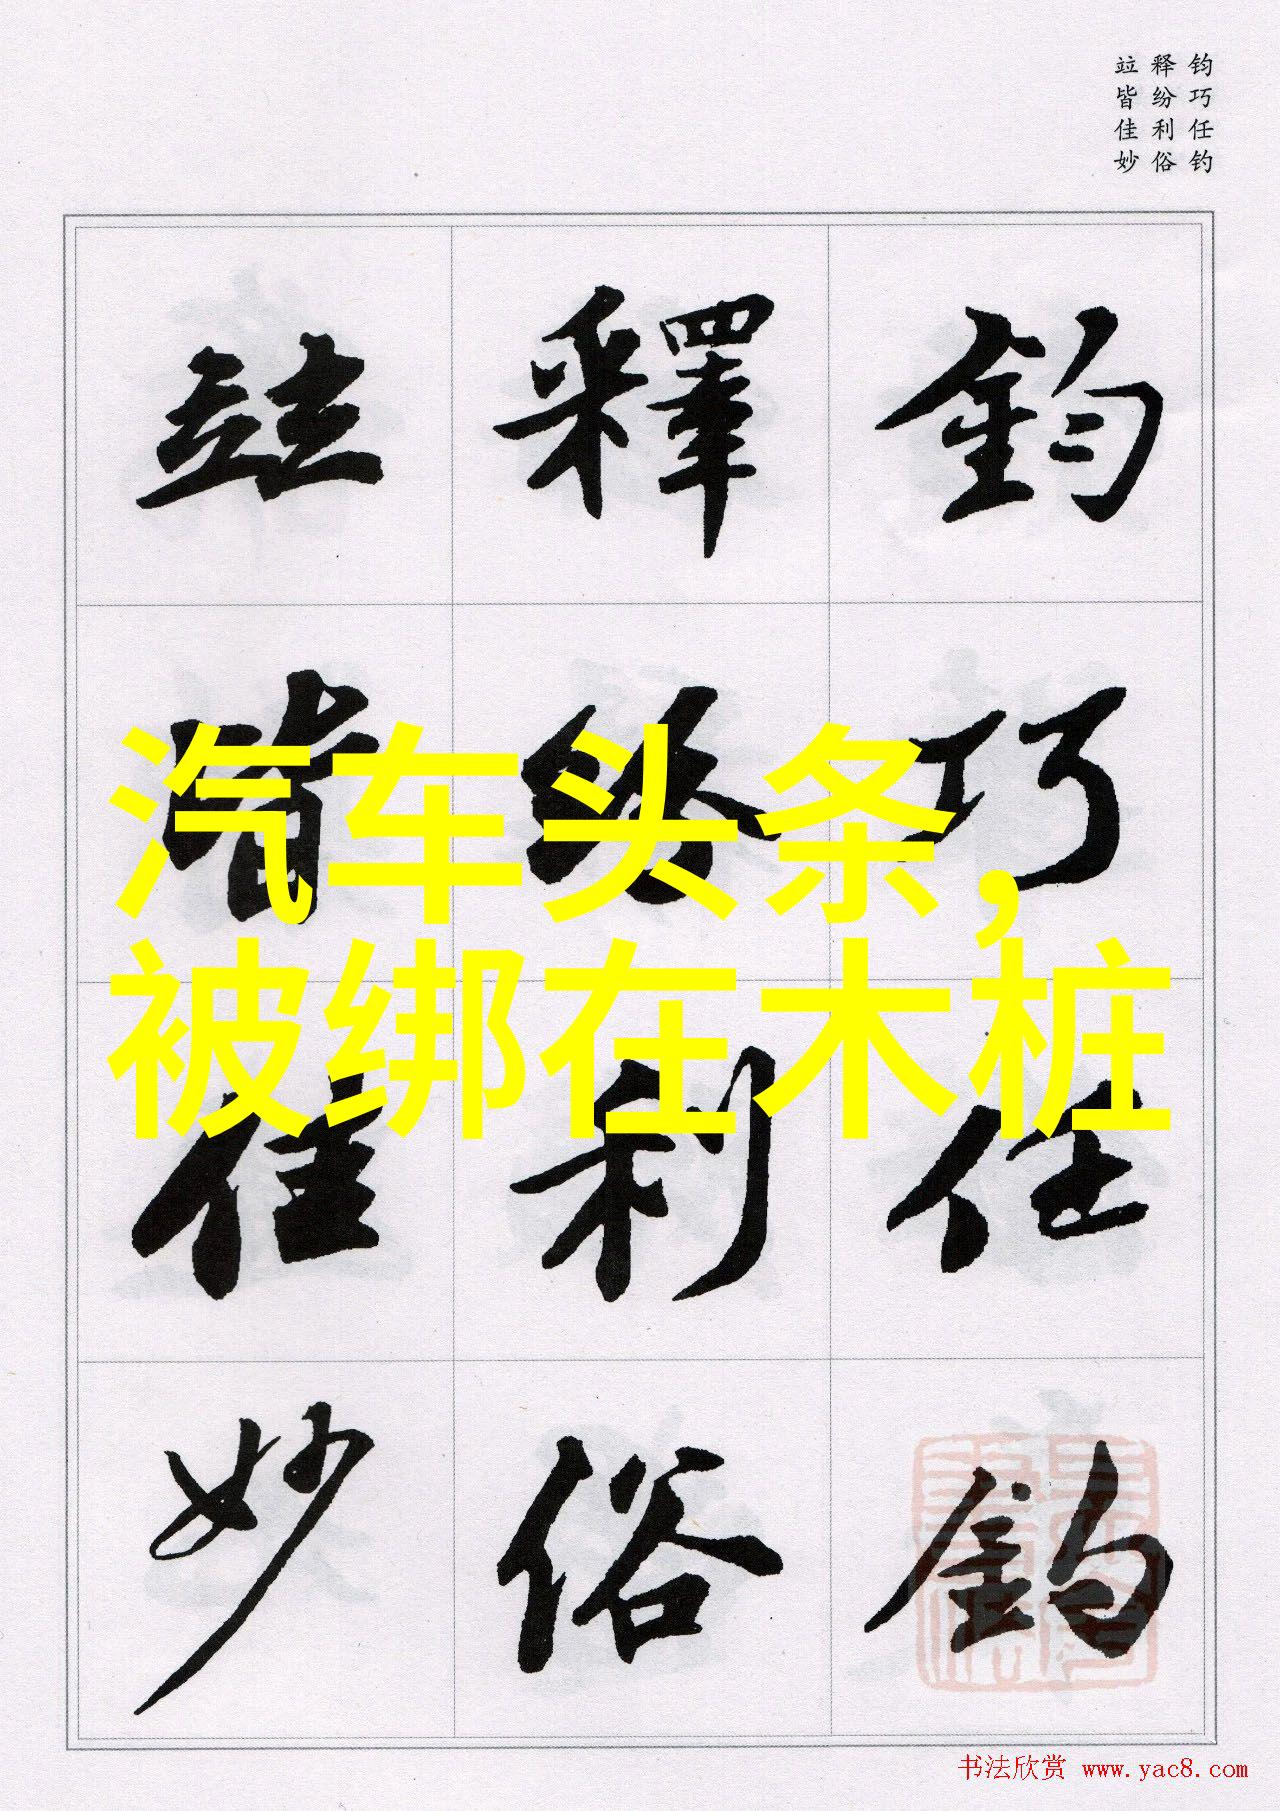 钧巧任钓
释纷利俗
竝皆佳妙
鈞巧任釣
釋紛利俗
竝皆佳妙
汽车头条,
被绑在木桩
书法欣赏 www.yac8.com